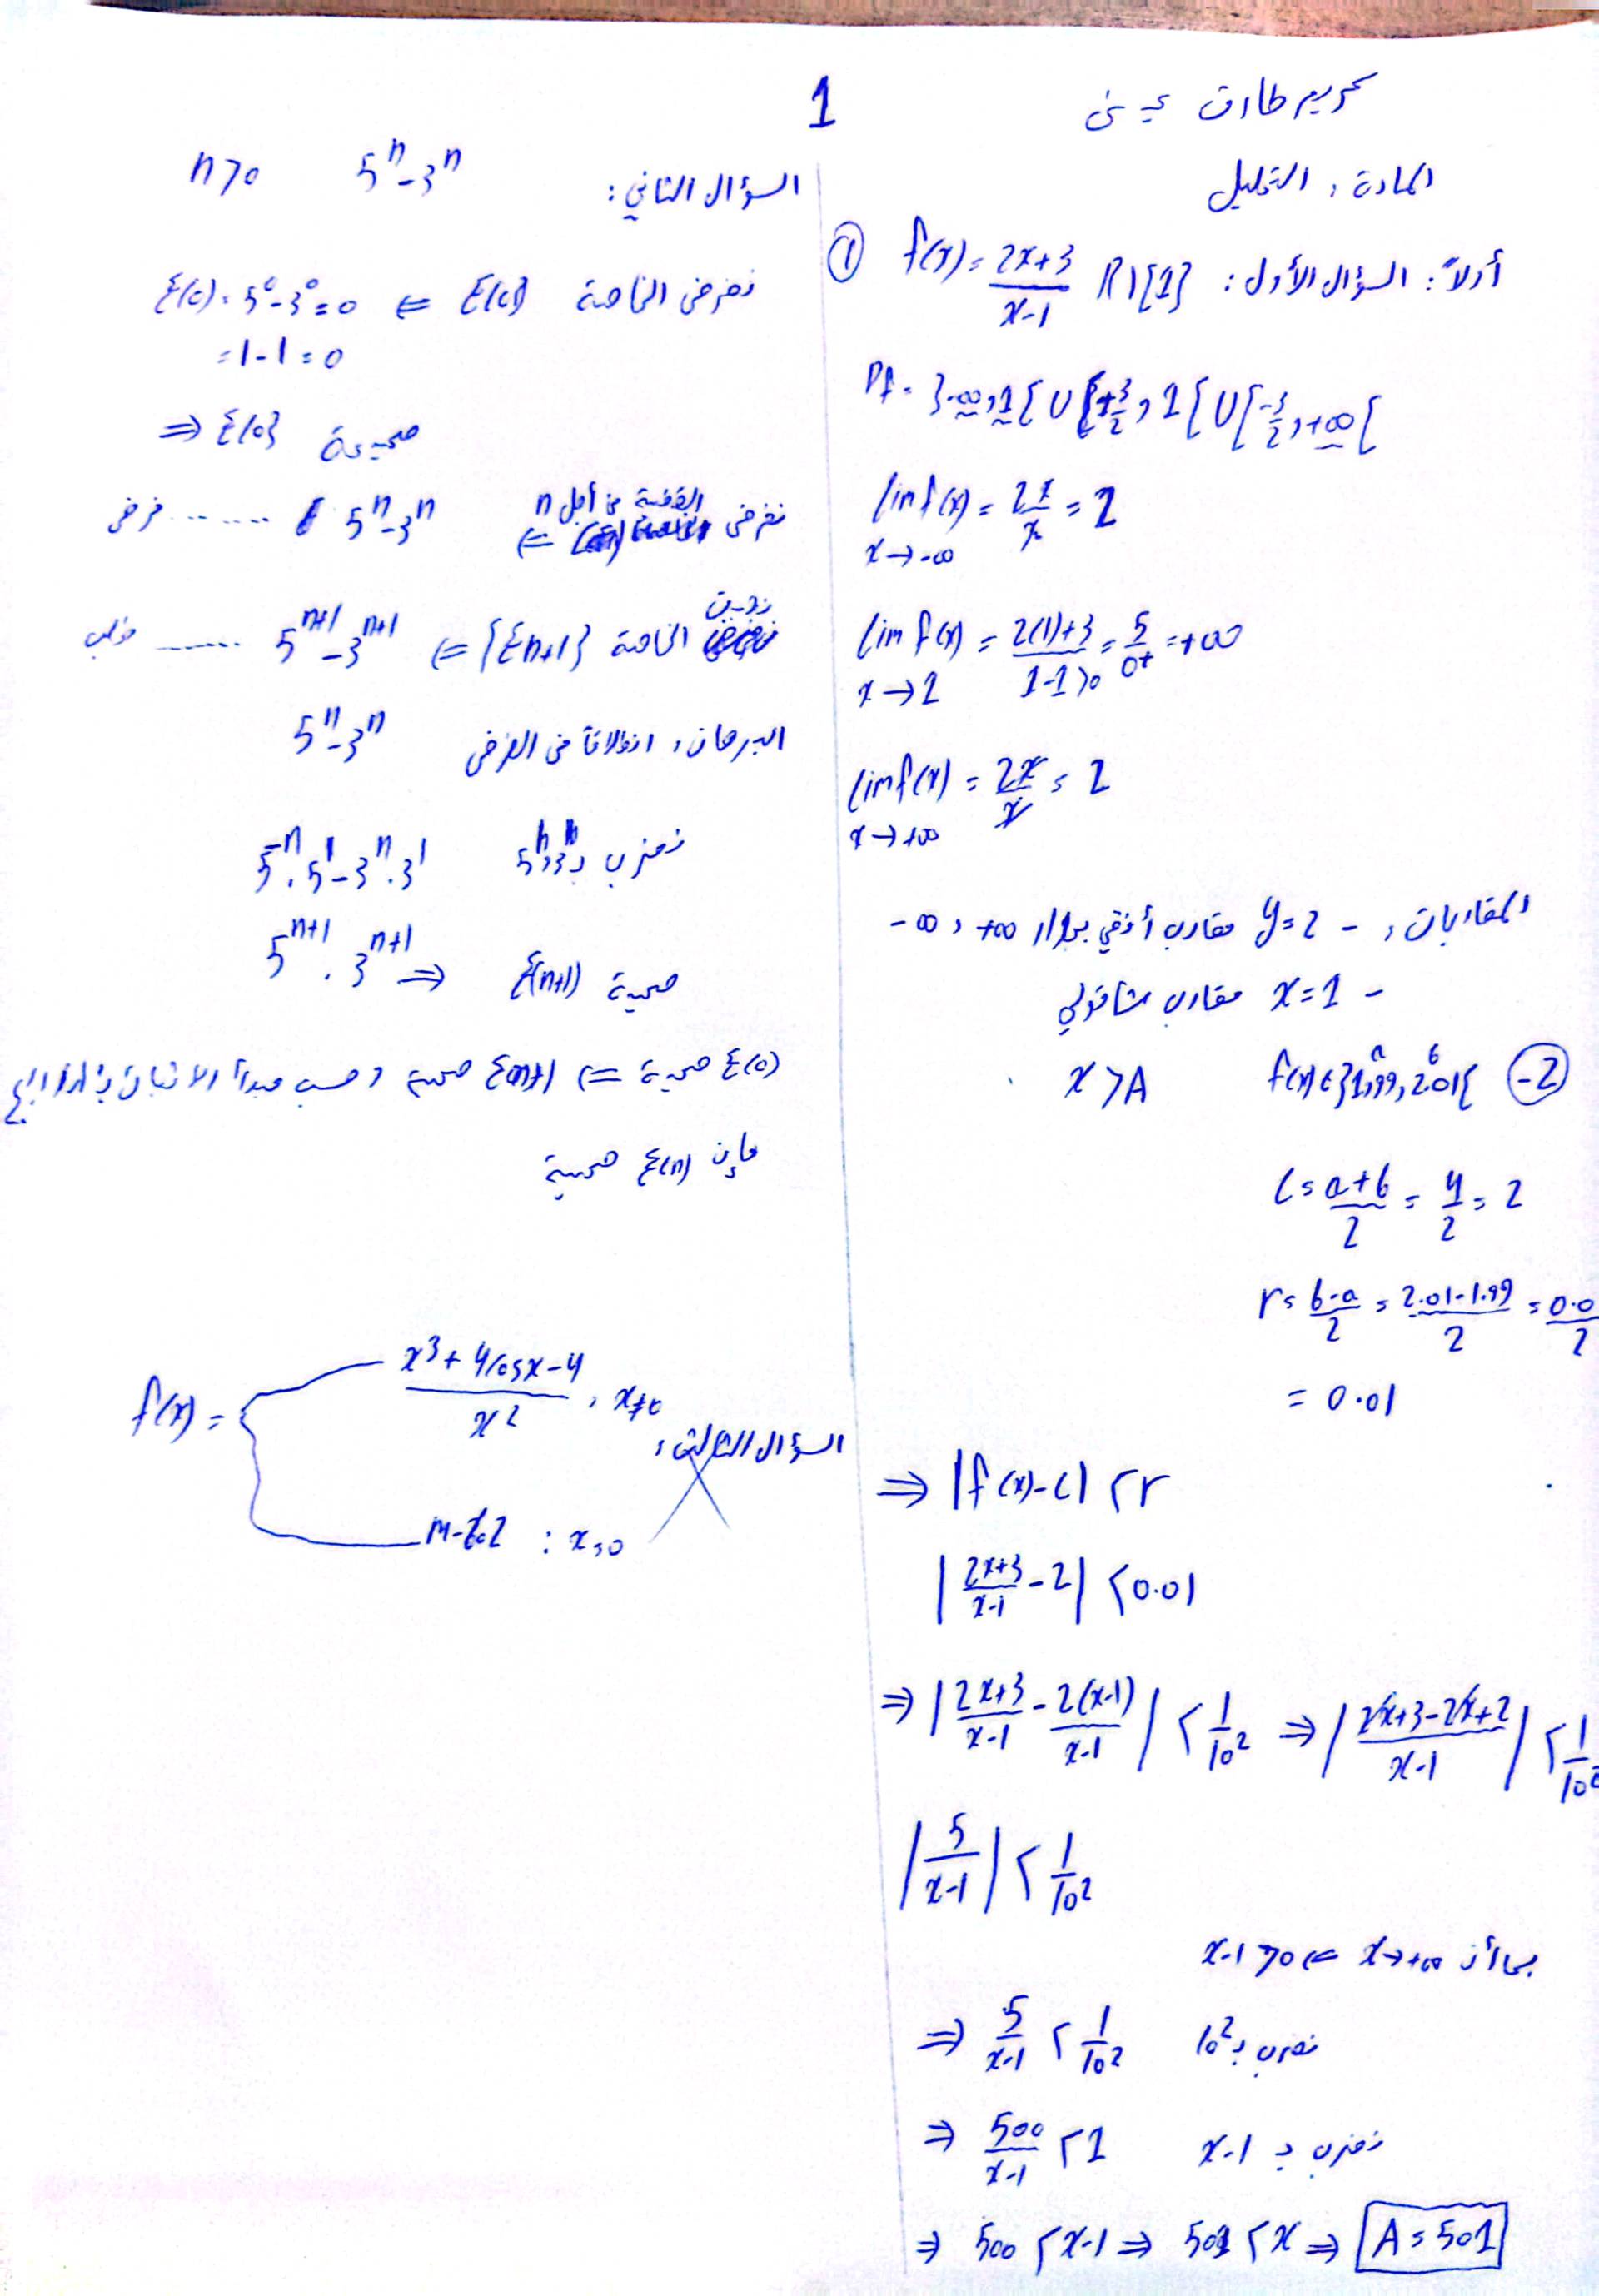 1
المادة: التحليل
أولاً: السؤال الأول: f(x) = \frac{2x+3}{x-1} R\{1} ①
lim f(x) = \frac{2x}{x} = 2
x→-∞
lim f(x) = \frac{2(1)+3}{1-1>0} = \frac{5}{0+} = +∞
x→1
lim f(x) = \frac{2x}{x} = 2
x→+∞
المقاربات: - y=2 مقارب أفقي بجوار +∞, -∞
- x=1 مقارب شاقولي
-2 f(x)∈]1.99, 2.01[ x>A
c = \frac{a+b}{2} = \frac{4}{2} = 2
r = \frac{b-a}{2} = \frac{2.01-1.99}{2} = \frac{0.0}{2}
= 0.01
⇒ |f(x)-c| < r
|\frac{2x+3}{x-1} - 2| < 0.01
⇒ |\frac{2x+3}{x-1} - \frac{2(x-1)}{x-1}| < \frac{1}{10^2} ⇒ |\frac{2x+3-2x+2}{x-1}| < \frac{1}{10^2}
|\frac{5}{x-1}| < \frac{1}{10^2}
بما أن x→+∞ ⇐ x-1>0
⇒ \frac{5}{x-1} < \frac{1}{10^2} نضرب بـ 10^2
⇒ \frac{500}{x-1} < 1 نضرب بـ x-1
⇒ 500 < x-1 ⇒ 501 < x ⇒ A = 501
السؤال الثاني: 5^n - 3^n n>0
نفرض الخاصة E(0) ⇐ E(0) = 5^0 - 3^0 = 0
= 1-1 = 0
⇒ E(0) صحيحة
نفرض القضية من أجل n ⇐ 5^n - 3^n ...... فرض
الخاصة {E n+1} ⇐ 5^{n+1} - 3^{n+1} ...... طلب
البرهان: انطلاقاً من الفرض 5^n - 3^n
نضرب بـ 5^n.5^1 - 3^n.3^1
5^{n+1} . 3^{n+1} ⇒ E(n+1) صحيحة
E(0) صحيحة ⇐ E(n+1) صحيحة حسب مبدأ الاثبات بالتدريج
فإن E(n) صحيحة
السؤال الثالث:
f(x) = \frac{x^3+4cosx-4}{x^2} , x≠0
: x=0